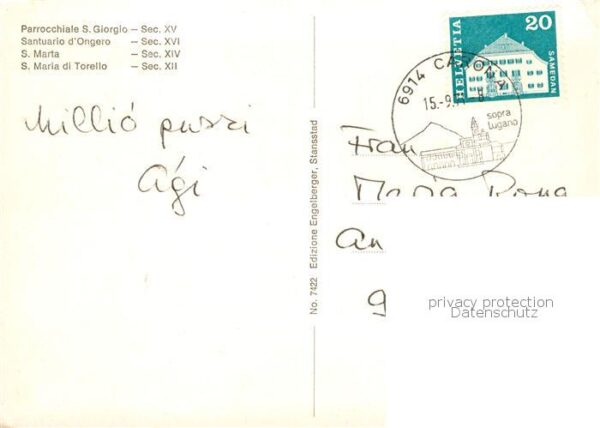 Parrocchiale S. Giorgio – Sec. XV
Santuario d'Ongero – Sec. XVI
S. Marta – Sec. XIV
S. Maria di Torello – Sec. XII
Millió puszi
Ági
No. 7422 Edizione Engelberger, Stansstad
HELVETIA
20
SAMEDAN
6914 CARONA
15.-9.
sopra
Lugano
Frau
Maria
An
9
privacy protection
Datenschutz